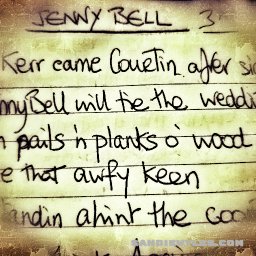 JENNY BELL 3
Kerr came Couetin after si
nny Bell will tie the weddi
n pails 'n planks o' wood
e that awfy keen
andin ahint the coo
SANDISMYLES.COM